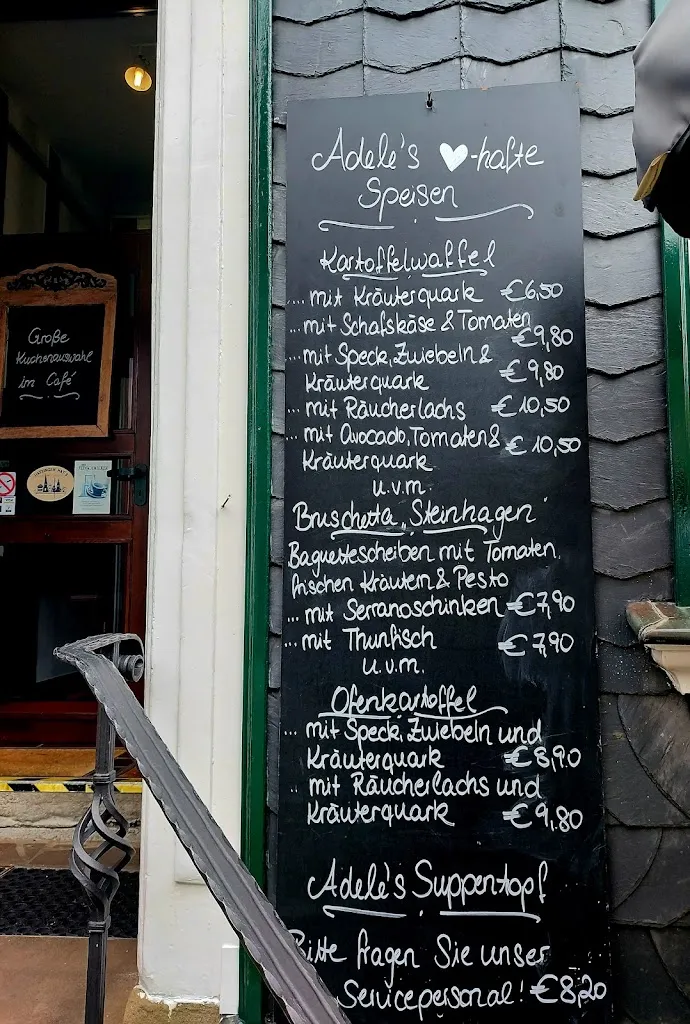 Adele's ♥-hafte
Speisen
Kartoffelwaffel
... mit Kräuterquark €6,50
... mit Schafskäse & Tomaten
€9,80
... mit Speck, Zwiebeln &
Kräuterquark €9,80
... mit Räucherlachs €10,50
... mit Avocado, Tomaten &
Kräuterquark €10,50
u.v.m.
Bruschetta „Steinhagen"
Baguettescheiben mit Tomaten,
frischen Kräutern & Pesto
... mit Serranoschinken €7,90
... mit Thunfisch €7,90
u.v.m.
Ofenkartoffel
... mit Speck, Zwiebeln und
Kräuterquark €8,90
.. mit Räucherlachs und
Kräuterquark €9,80
Adele's Suppentopf
Bitte fragen Sie unser
Servicepersonal! €8,20
Große
Kuchenauswahl
im Café